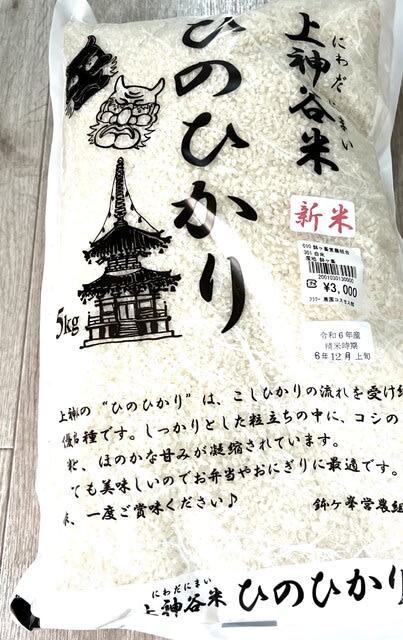 にわだにまい
上神谷米
ひのひかり
新米
010 鉢ヶ峯営農組合
301 白米
産地 鉢ヶ峯
2001030130000
¥3,000
ﾌﾗﾜｰ 農園コスモス館
令和6年産
精米時期
6年12月上旬
5kg
上神の “ひのひかり” は、こしひかりの流れを受け継
優良種です。しっかりとした粒立ちの中に、コシの
、ほのかな甘みが凝縮されています。
ても美味しいのでお弁当やおにぎりに最適です。
、一度ご賞味ください♪
鉢ヶ峯営農組
にわだにまい
上神谷米 ひのひかり